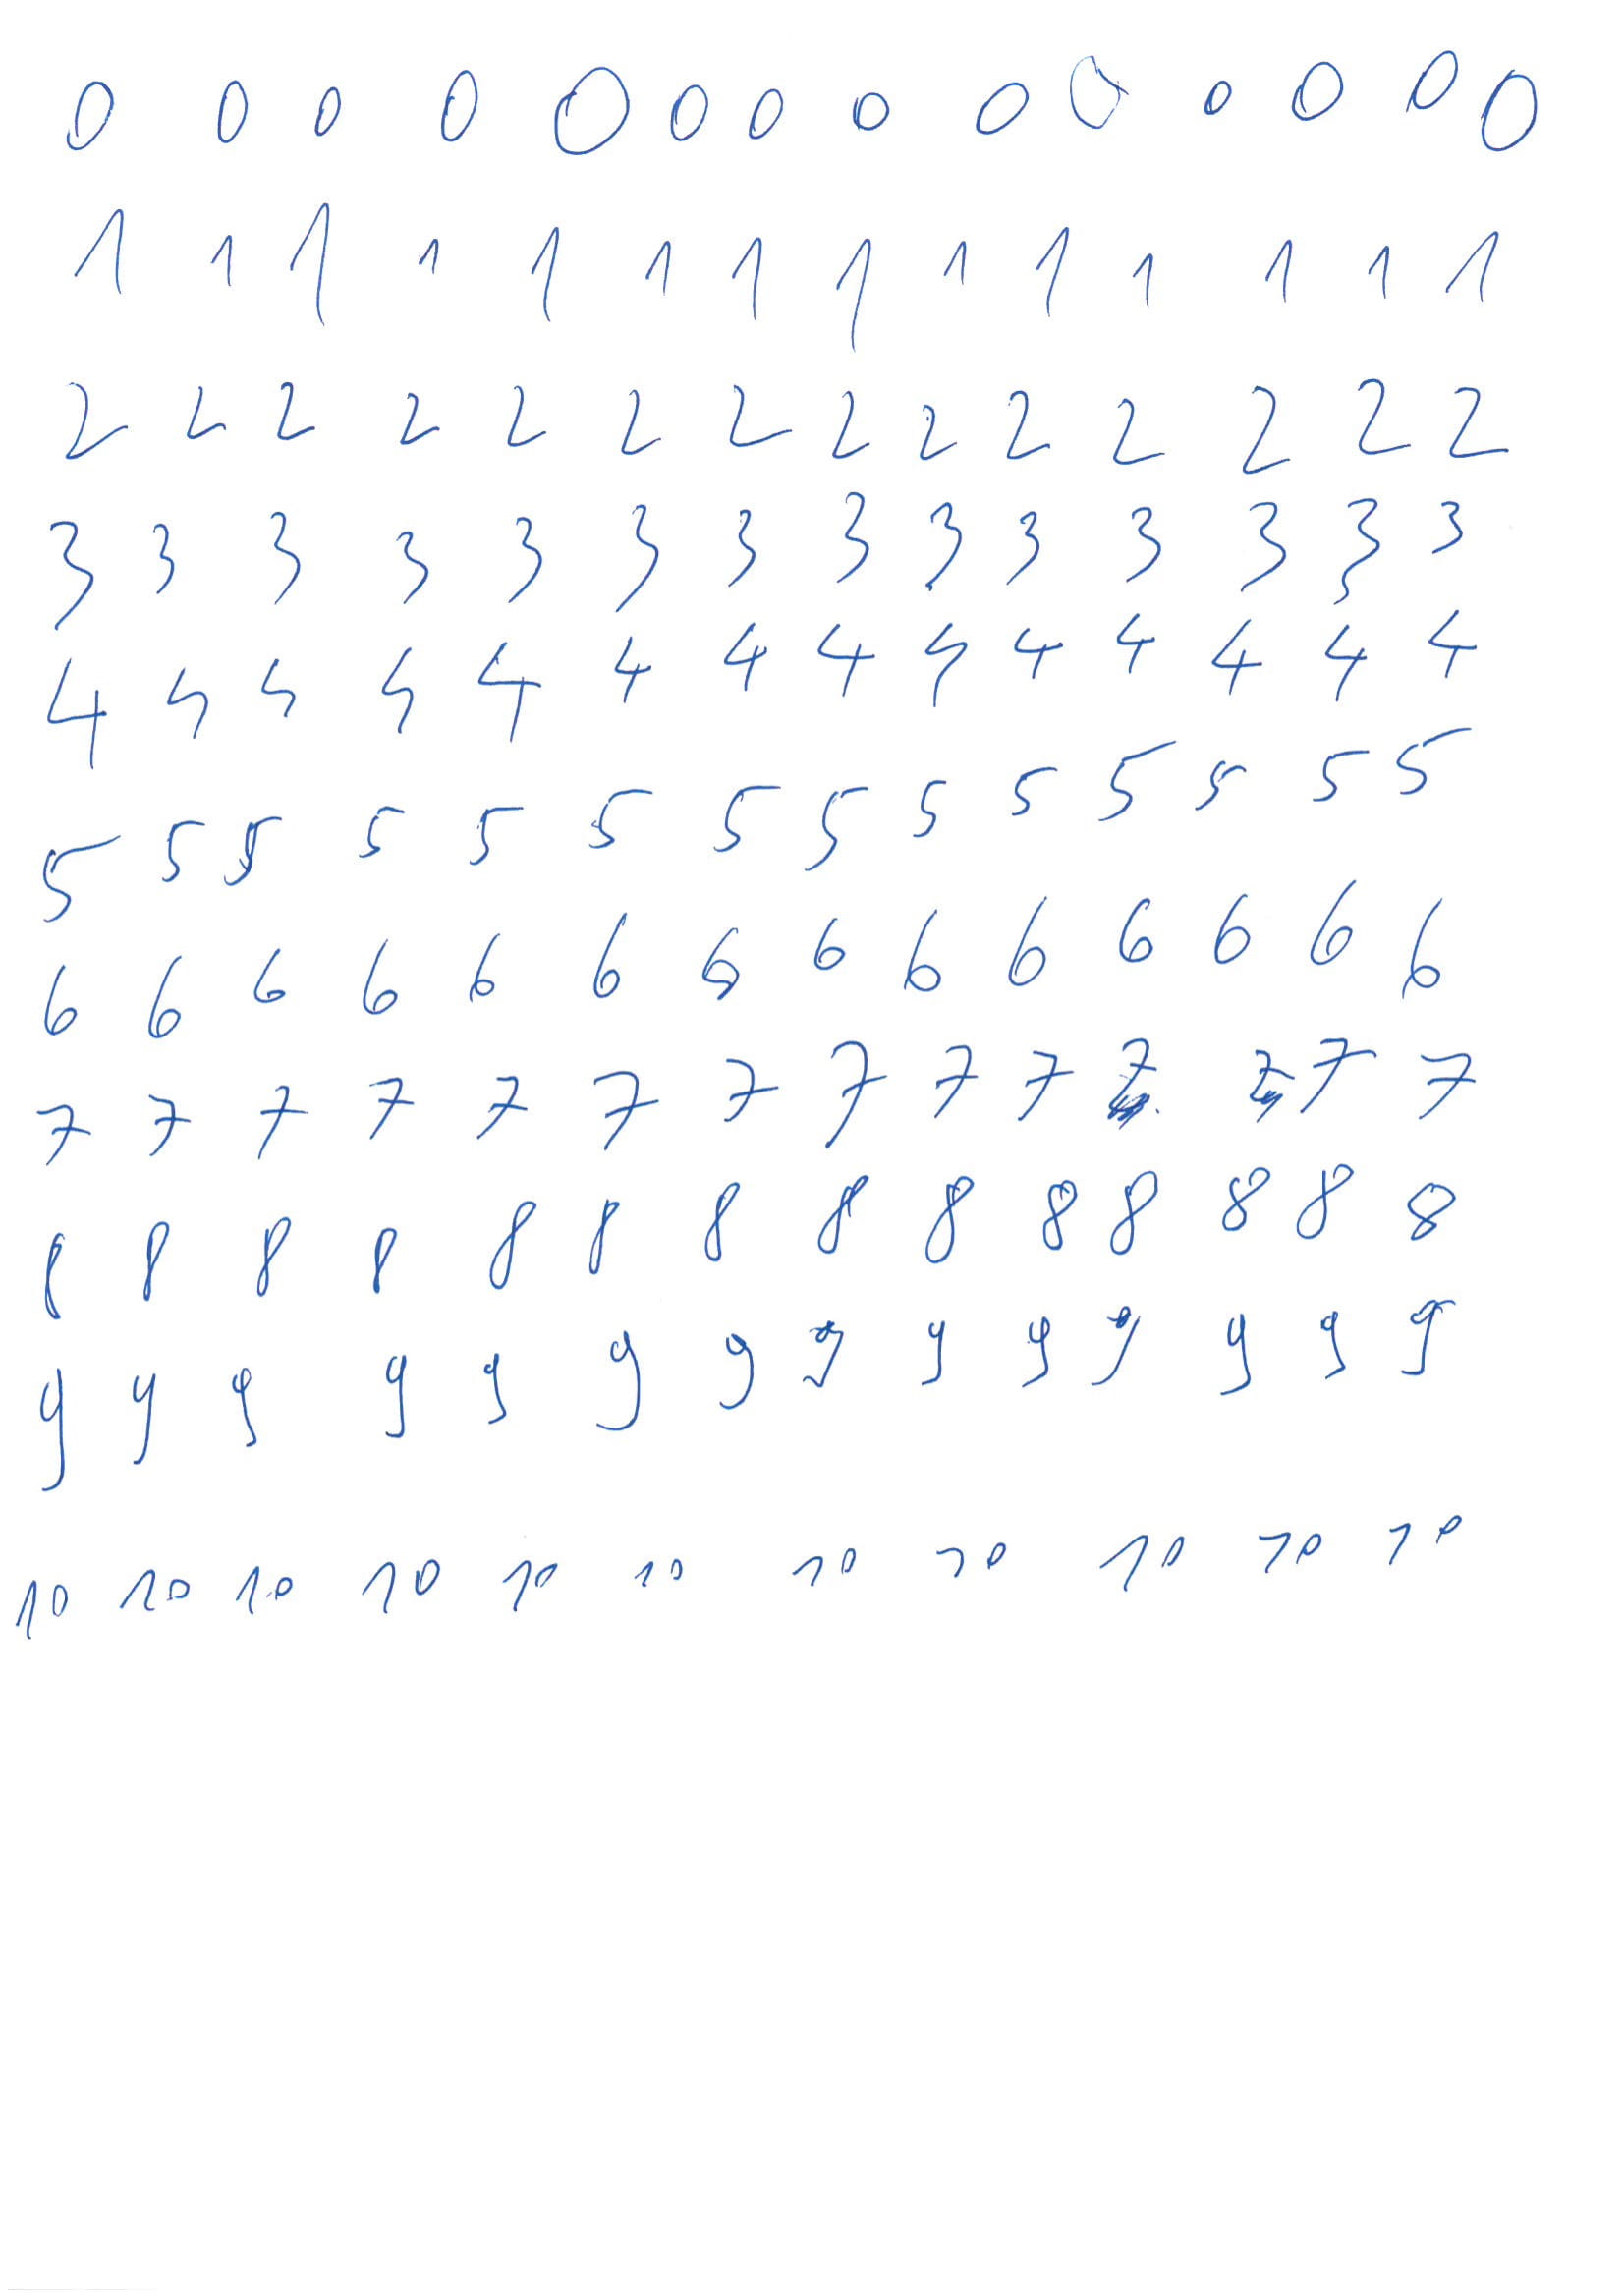 0 0 0 0 0 0 0 0 0 0 0 0 0 0
1 1 1 1 1 1 1 1 1 1 1 1 1 1
2 2 2 2 2 2 2 2 2 2 2 2 2 2
3 3 3 3 3 3 3 3 3 3 3 3 3 3
4 4 4 4 4 4 4 4 4 4 4 4 4 4
5 5 5 5 5 5 5 5 5 5 5 5 5 5
6 6 6 6 6 6 6 6 6 6 6 6 6 6
7 7 7 7 7 7 7 7 7 7 7 7 7 7
8 8 8 8 8 8 8 8 8 8 8 8 8 8
9 9 9 9 9 9 9 9 9 9 9 9 9 9
10 10 10 10 10 10 10 10 10 10 10